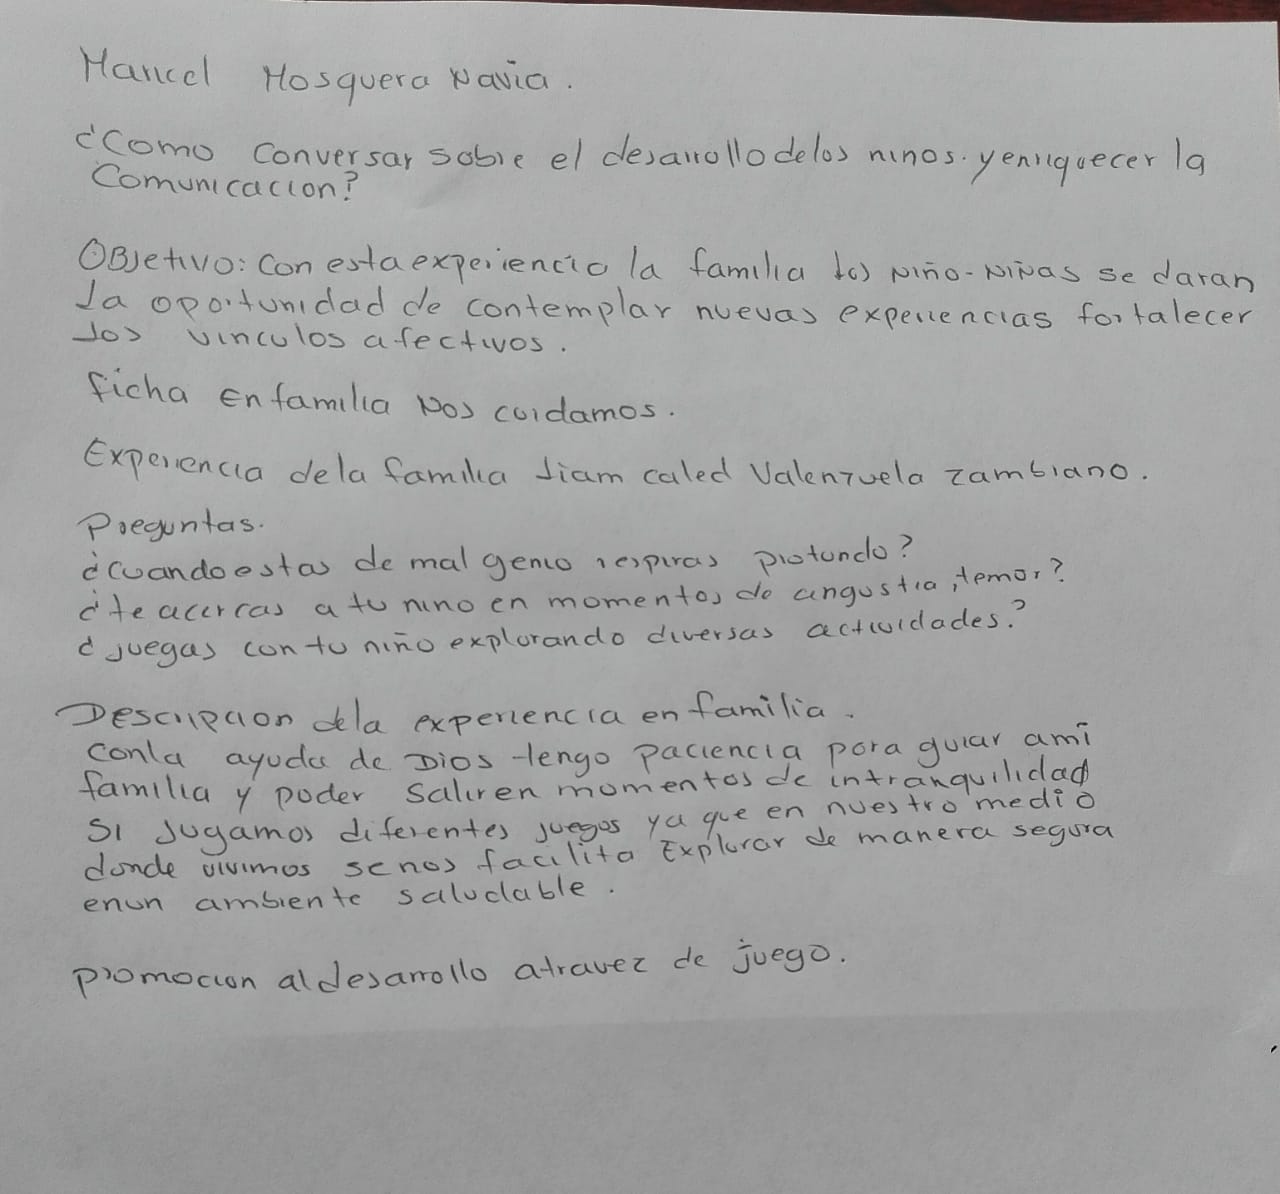 Maricel Mosquera Navia.
¿Como conversar sobre el desarrollo de los niños. y enriquecer la
Comunicacion?
OBJetivo: Con esta experiencia la familia los Niño-Niñas se daran
La oportunidad de contemplar nuevas experiencias fortalecer
los vinculos afectivos.
ficha En familia Nos cuidamos.
Experiencia de la familia Liam caled Valenzuela zambrano.
Preguntas.
¿Cuando estas de mal genio respiras profundo?
¿te acercas a tu nino en momentos de angustia, temor?
¿juegas con tu niño explorando diversas actividades?
Descripcion de la experiencia en familia.
Con la ayuda de Dios tengo paciencia para guiar a mi
familia y poder salir en momentos de intranquilidad
SI Jugamos diferentes juegos ya que en nuestro medio
donde vivimos se nos facilita Explorar de manera segura
en un ambiente saludable.
promocion al desarrollo atravez de juego.